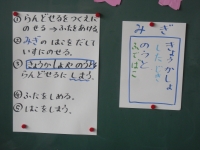 ① らんどせるをつくえに
のせる→ふたをあける。
② みぎのはこをだして
いすにのせる。
③ きょうかしょやのうとを
らんどせるにしまう。
④ ふたをしめる。
⑤ はこをしまう。
みぎ
きょうかしょ
したじき
のうと
ふでばこ